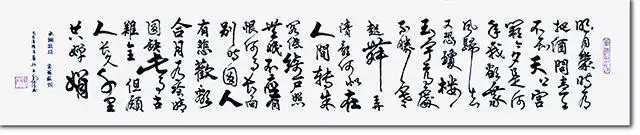 明月幾時有
把酒問青天
不知天上宮
闕今夕是何
年我欲乘
風歸去
又恐瓊樓
玉宇高處
不勝寒
起舞弄
清影何似在
人間轉朱
閣低綺戶照
無眠不應有
恨何事長向
別時圓人
有悲歡離
合月有陰晴
圓缺此事古
難全但願
人長久千里
共嬋娟
水調歌頭